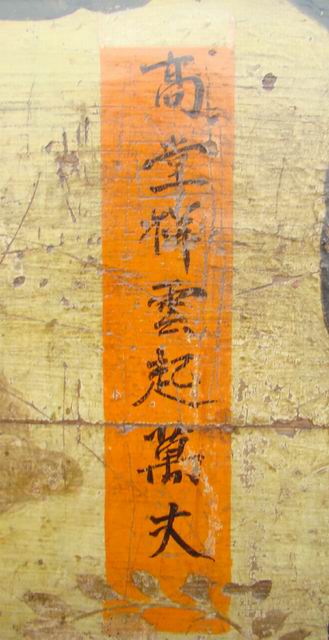 高堂祥雲起萬丈